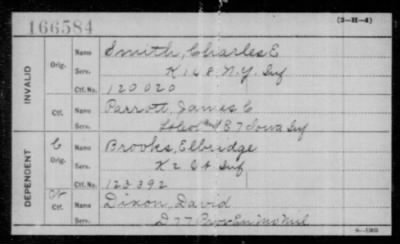 166584
(3—H—4)
INVALID
Orig. Name Smith, Charles E
Serv. K 168 N.Y. Inf
Ctf. No. 120020
Ctf. Name Parrott, James C
Serv. 87 Iowa Inf
DEPENDENT
C Orig. Name Brooks, Elbridge
Serv. K 2 Inf
Ctf. No. 123392
Ctf. Name Dixon, David
Serv. D 77 Mo Mil